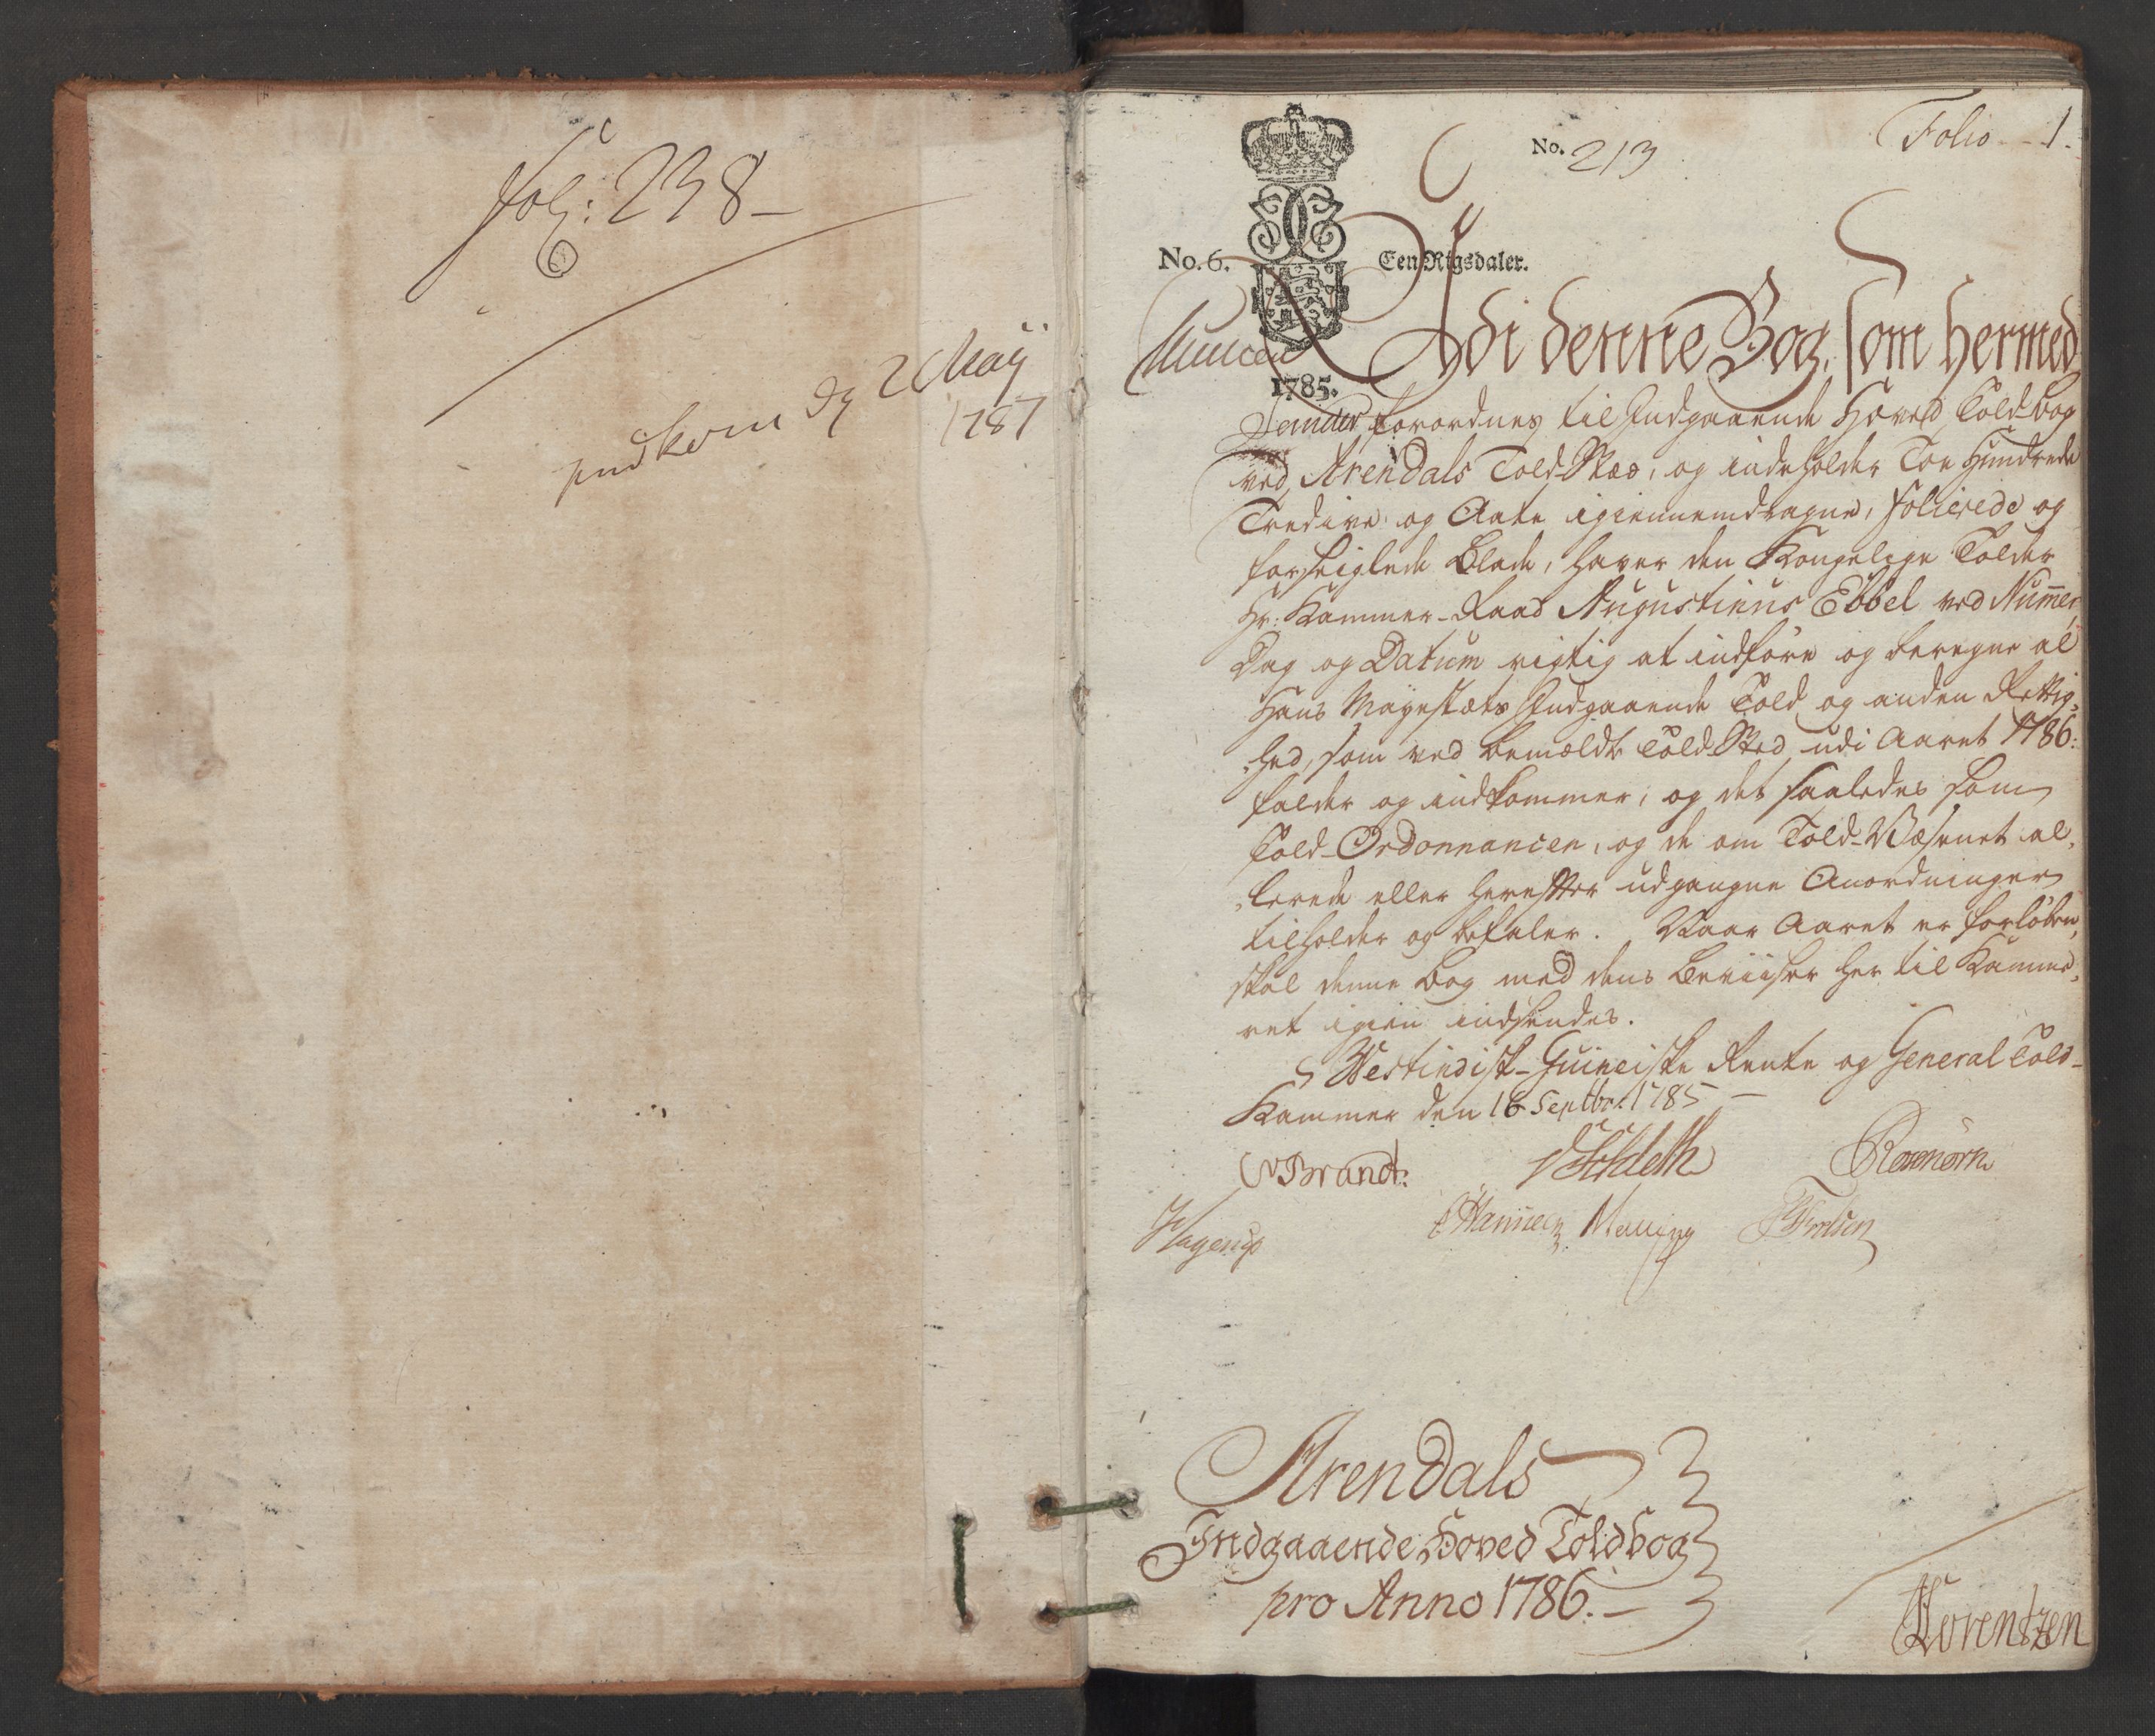 fol: 238
indkom d 2 Maij
1787
No. 213
Folio - - 1.
No. 6.
Een Rigsdaler.
1785.
Udi denne Bog, som hermed
forordnes til Indgaaende Hoved Told-bog
ved Arendals Told-Stæd, og indeholder Toe Hundrede
Tredive og Aatte igiennemdragne, folierede og
forseiglede Blade, haver den Kongelige Tolder
Hr: Kammer-Raad Augustinus Ebbel ved Num̅er,
Dag og Datum rigtig at indføre og beregne al
Hans Mayestæts Indgaaende Told og anden Rettig-
-hed, som ved bemældte Told-Sted udi Aaret 1786:
falder og indkommer; og det saaledes som
Told-Ordonnancen, og de om Told-Væsenet al-
-lerede eller herefter udgangne Anordninger
tilholder og befaler. Naar Aaret er forløben,
skal denne Bog med dens Beviiser her til Kamme-
ret igien indsendes.
Westindisk-Guineiske Rente og General Told-
Kammer den 16 Septbr: 1785
Brandt.
Rosenørn
Hagerup
Malling
Arendals
Indgaaende Hoved Toldbog
pro Anno 1786.
Lorentzen